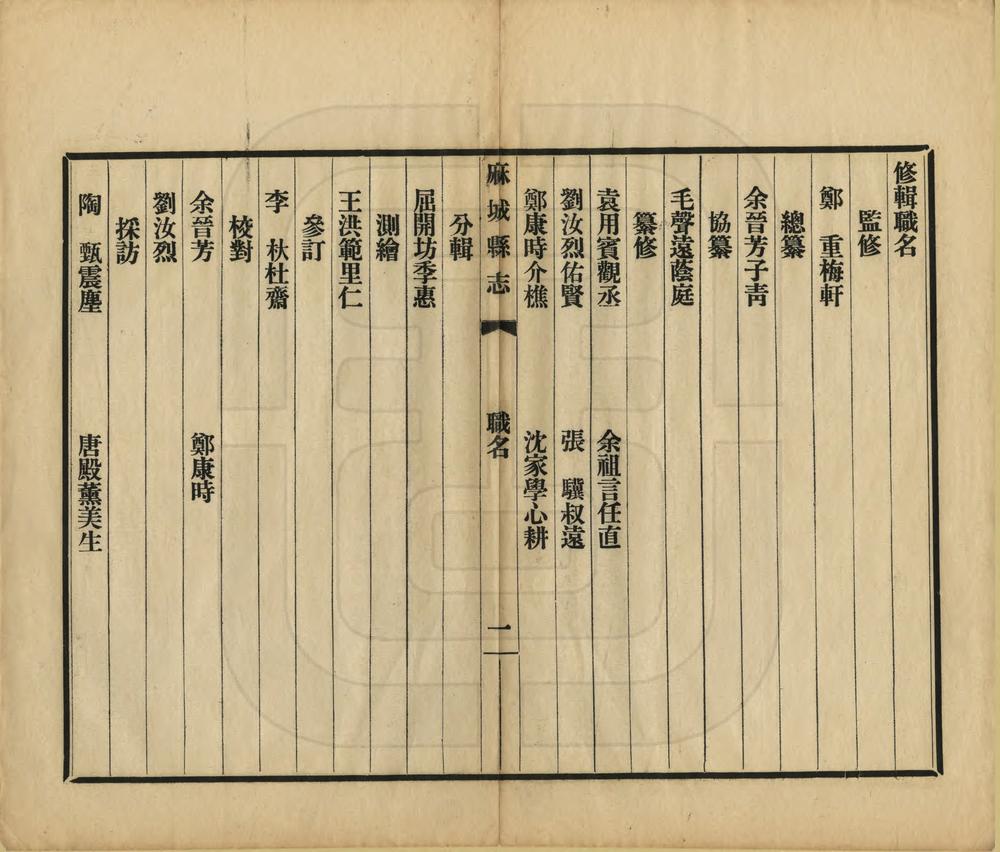 修輯職名
監修
鄭　重梅軒
總纂
余晉芳子青
協纂
毛聲遠蔭庭
纂修
袁用賓觀丞　余祖言任直
劉汝烈佑賢　張　驥叔遠
鄭康時介樵　沈家學心耕
麻城縣志　職名　一
分輯
屈開坊季惠
測繪
王洪範里仁
參訂
李　杕杜齋
校對
余晉芳　鄭康時
劉汝烈
採訪
陶　甄震塵　唐殿薰美生